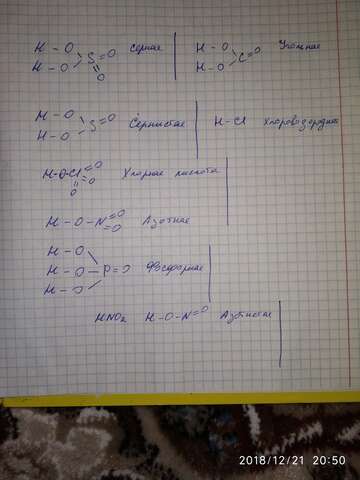 H-O
H-O
S=O
O
серная
H-O
H-O
C=O
Угольная
H-O
H-O
S=O
Сернистая
H-Cl
Хлороводородная
H-O-Cl=O
=O
O
Хлорная кислота
H-O-N=O
=O
Азотная
H-O
H-O-P=O
H-O
Фосфорная
HNO2 H-O-N=O Азотистая
2018/12/21 20:50